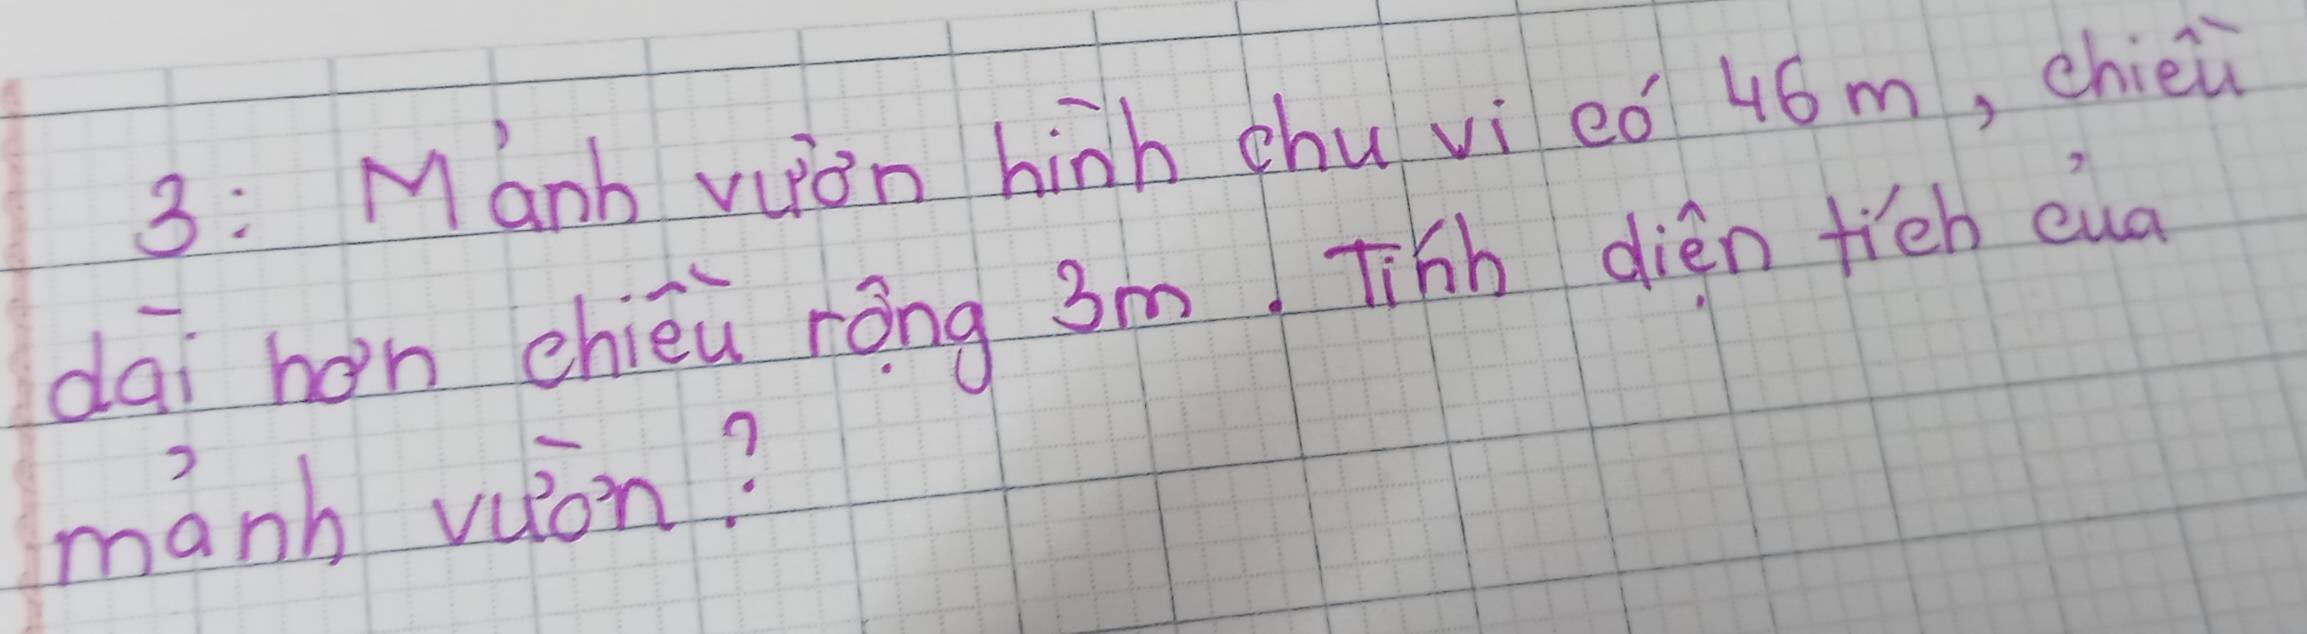 3: Mảnh vườn hình chu vi có 46 m, chiều
dài hơn chiều rộng 3m. Tính diện tích của
mảnh vườn?